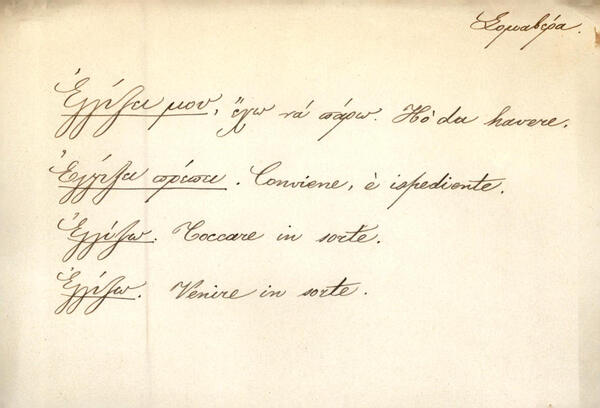 Σομαβέρα.
Ἐγγίζει μου, ἔχω νά πάρω. Hò da havere.
Ἐγγίζει πρέπει. Conviene, è ispediente.
Ἐγγίζω. Toccare in sorte.
Ἐγγίζω. Venire in sorte.